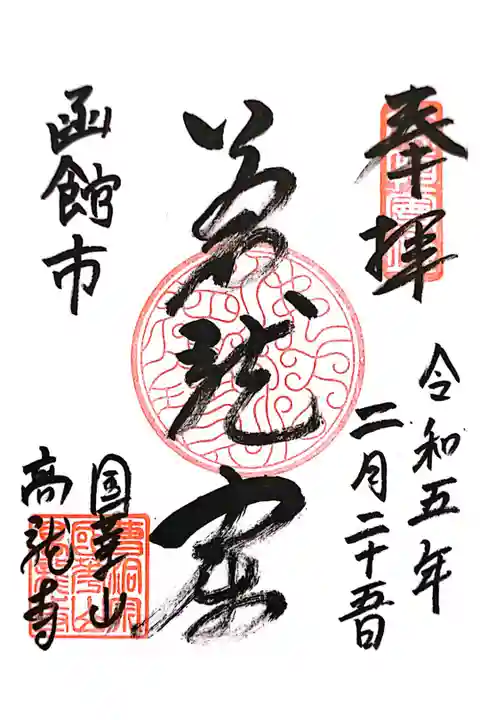 奉拝
令和五年
二月二十五日
蒼龍窟
函館市
国華山
高龍寺